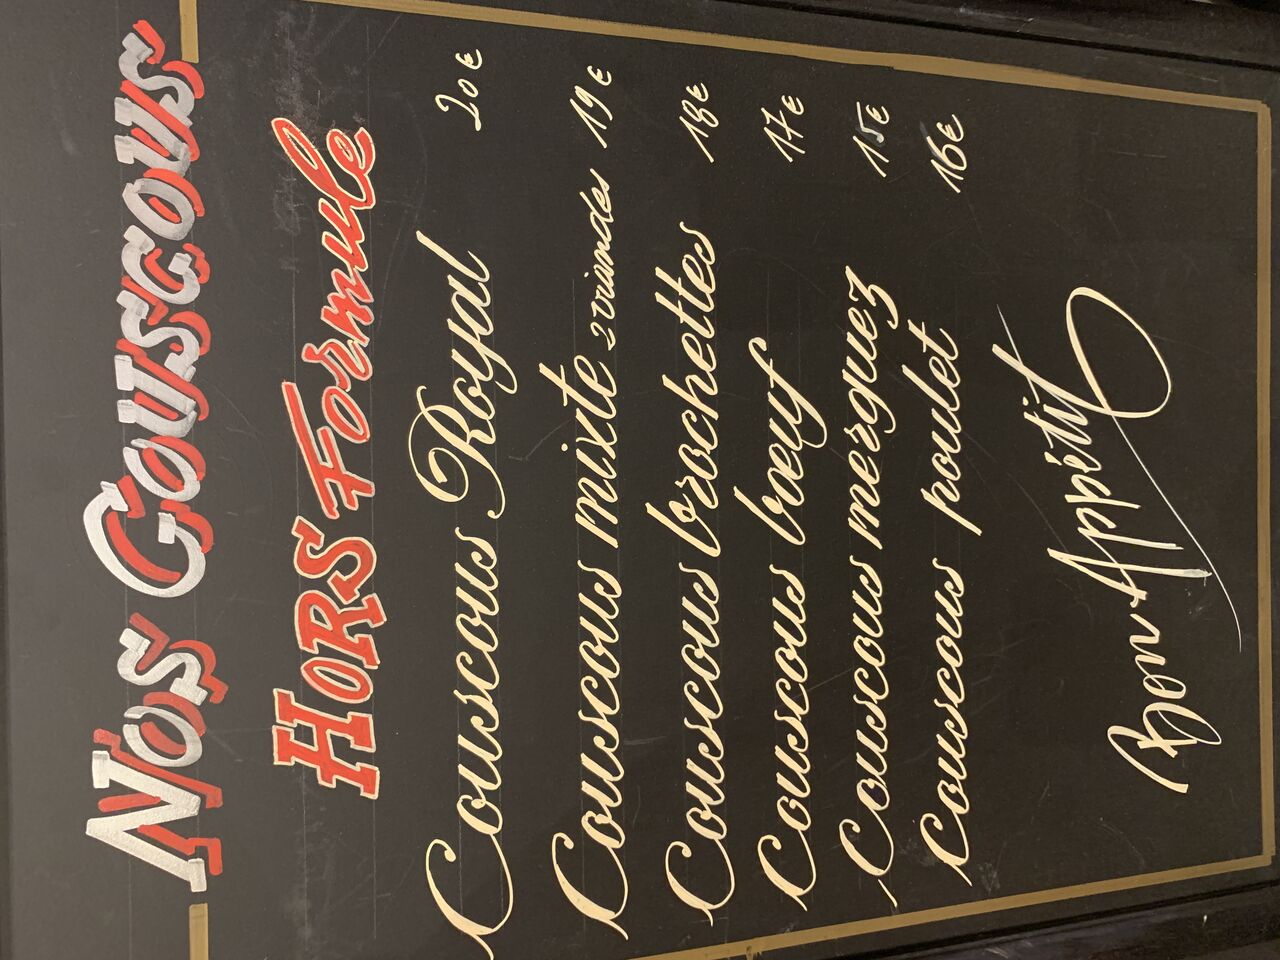 Nos Couscous
HORS Formule
Couscous Royal 20€
Couscous mixte 2 viandes 19€
Couscous brochettes 18€
Couscous bœuf 17€
Couscous merguez 15€
Couscous poulet 16€
Bon Appétit